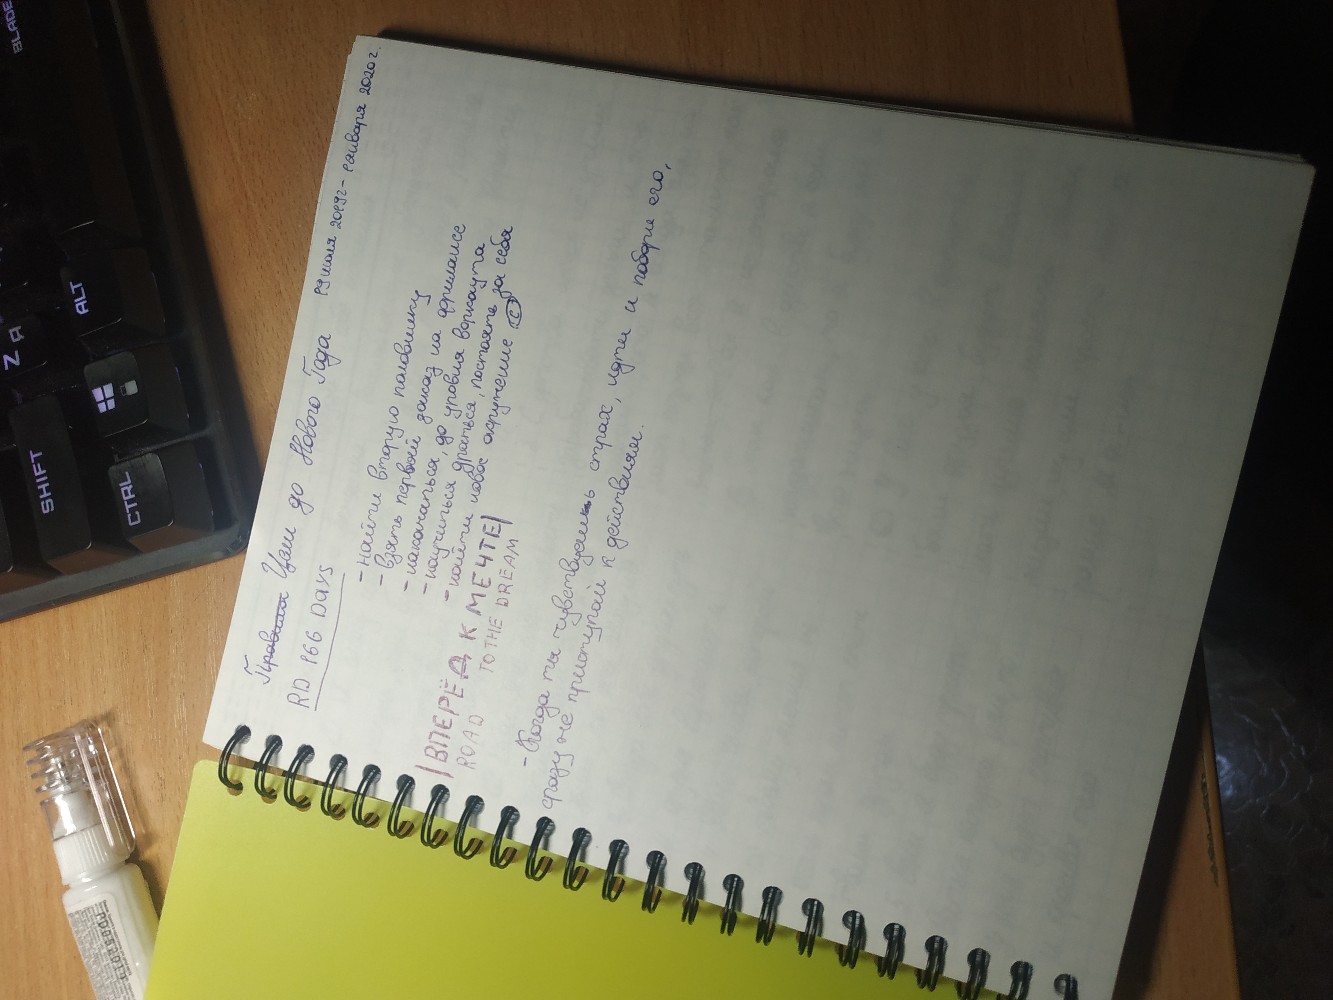 SHIFT
Z Я
BLADE
CTRL
ALT
Правила Цели до Нового Года 19 июля 2019г - 1 января 2020г.
RD 166 DAYS
- найти вторую половинку
- взять первый заказ на фрилансе
- накачаться, до уровня воркаута
- научиться драться, постоять за себя
- найти новое окружение
|ВПЕРЁД К МЕЧТЕ|
ROAD TO THE DREAM
- Когда ты чувствуешь страх, идти и побори его,
сразу же приступай к действиям.